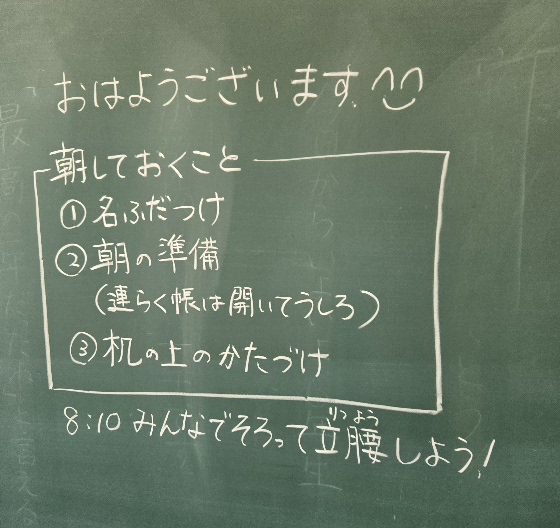 おはようございます.
朝しておくこと
① 名ふだつけ
② 朝の準備
(連らく帳は開いてうしろ)
③ 机の上のかたづけ
りつよう
8:10 みんなでそろって立腰しよう!